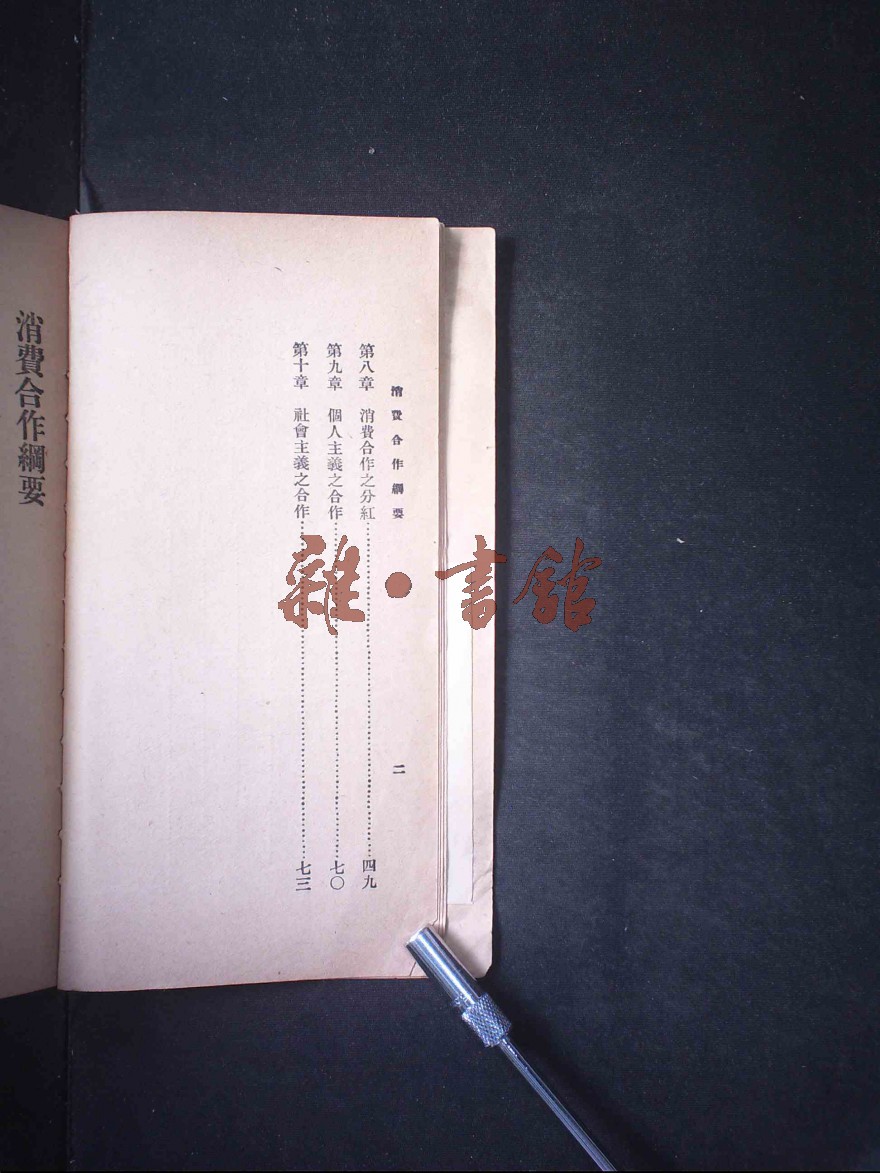 消費合作綱要
二
第八章 消費合作之分紅……四九
第九章 個人主義之合作……七〇
第十章 社會主義之合作……七三
消費合作綱要
雜·書館